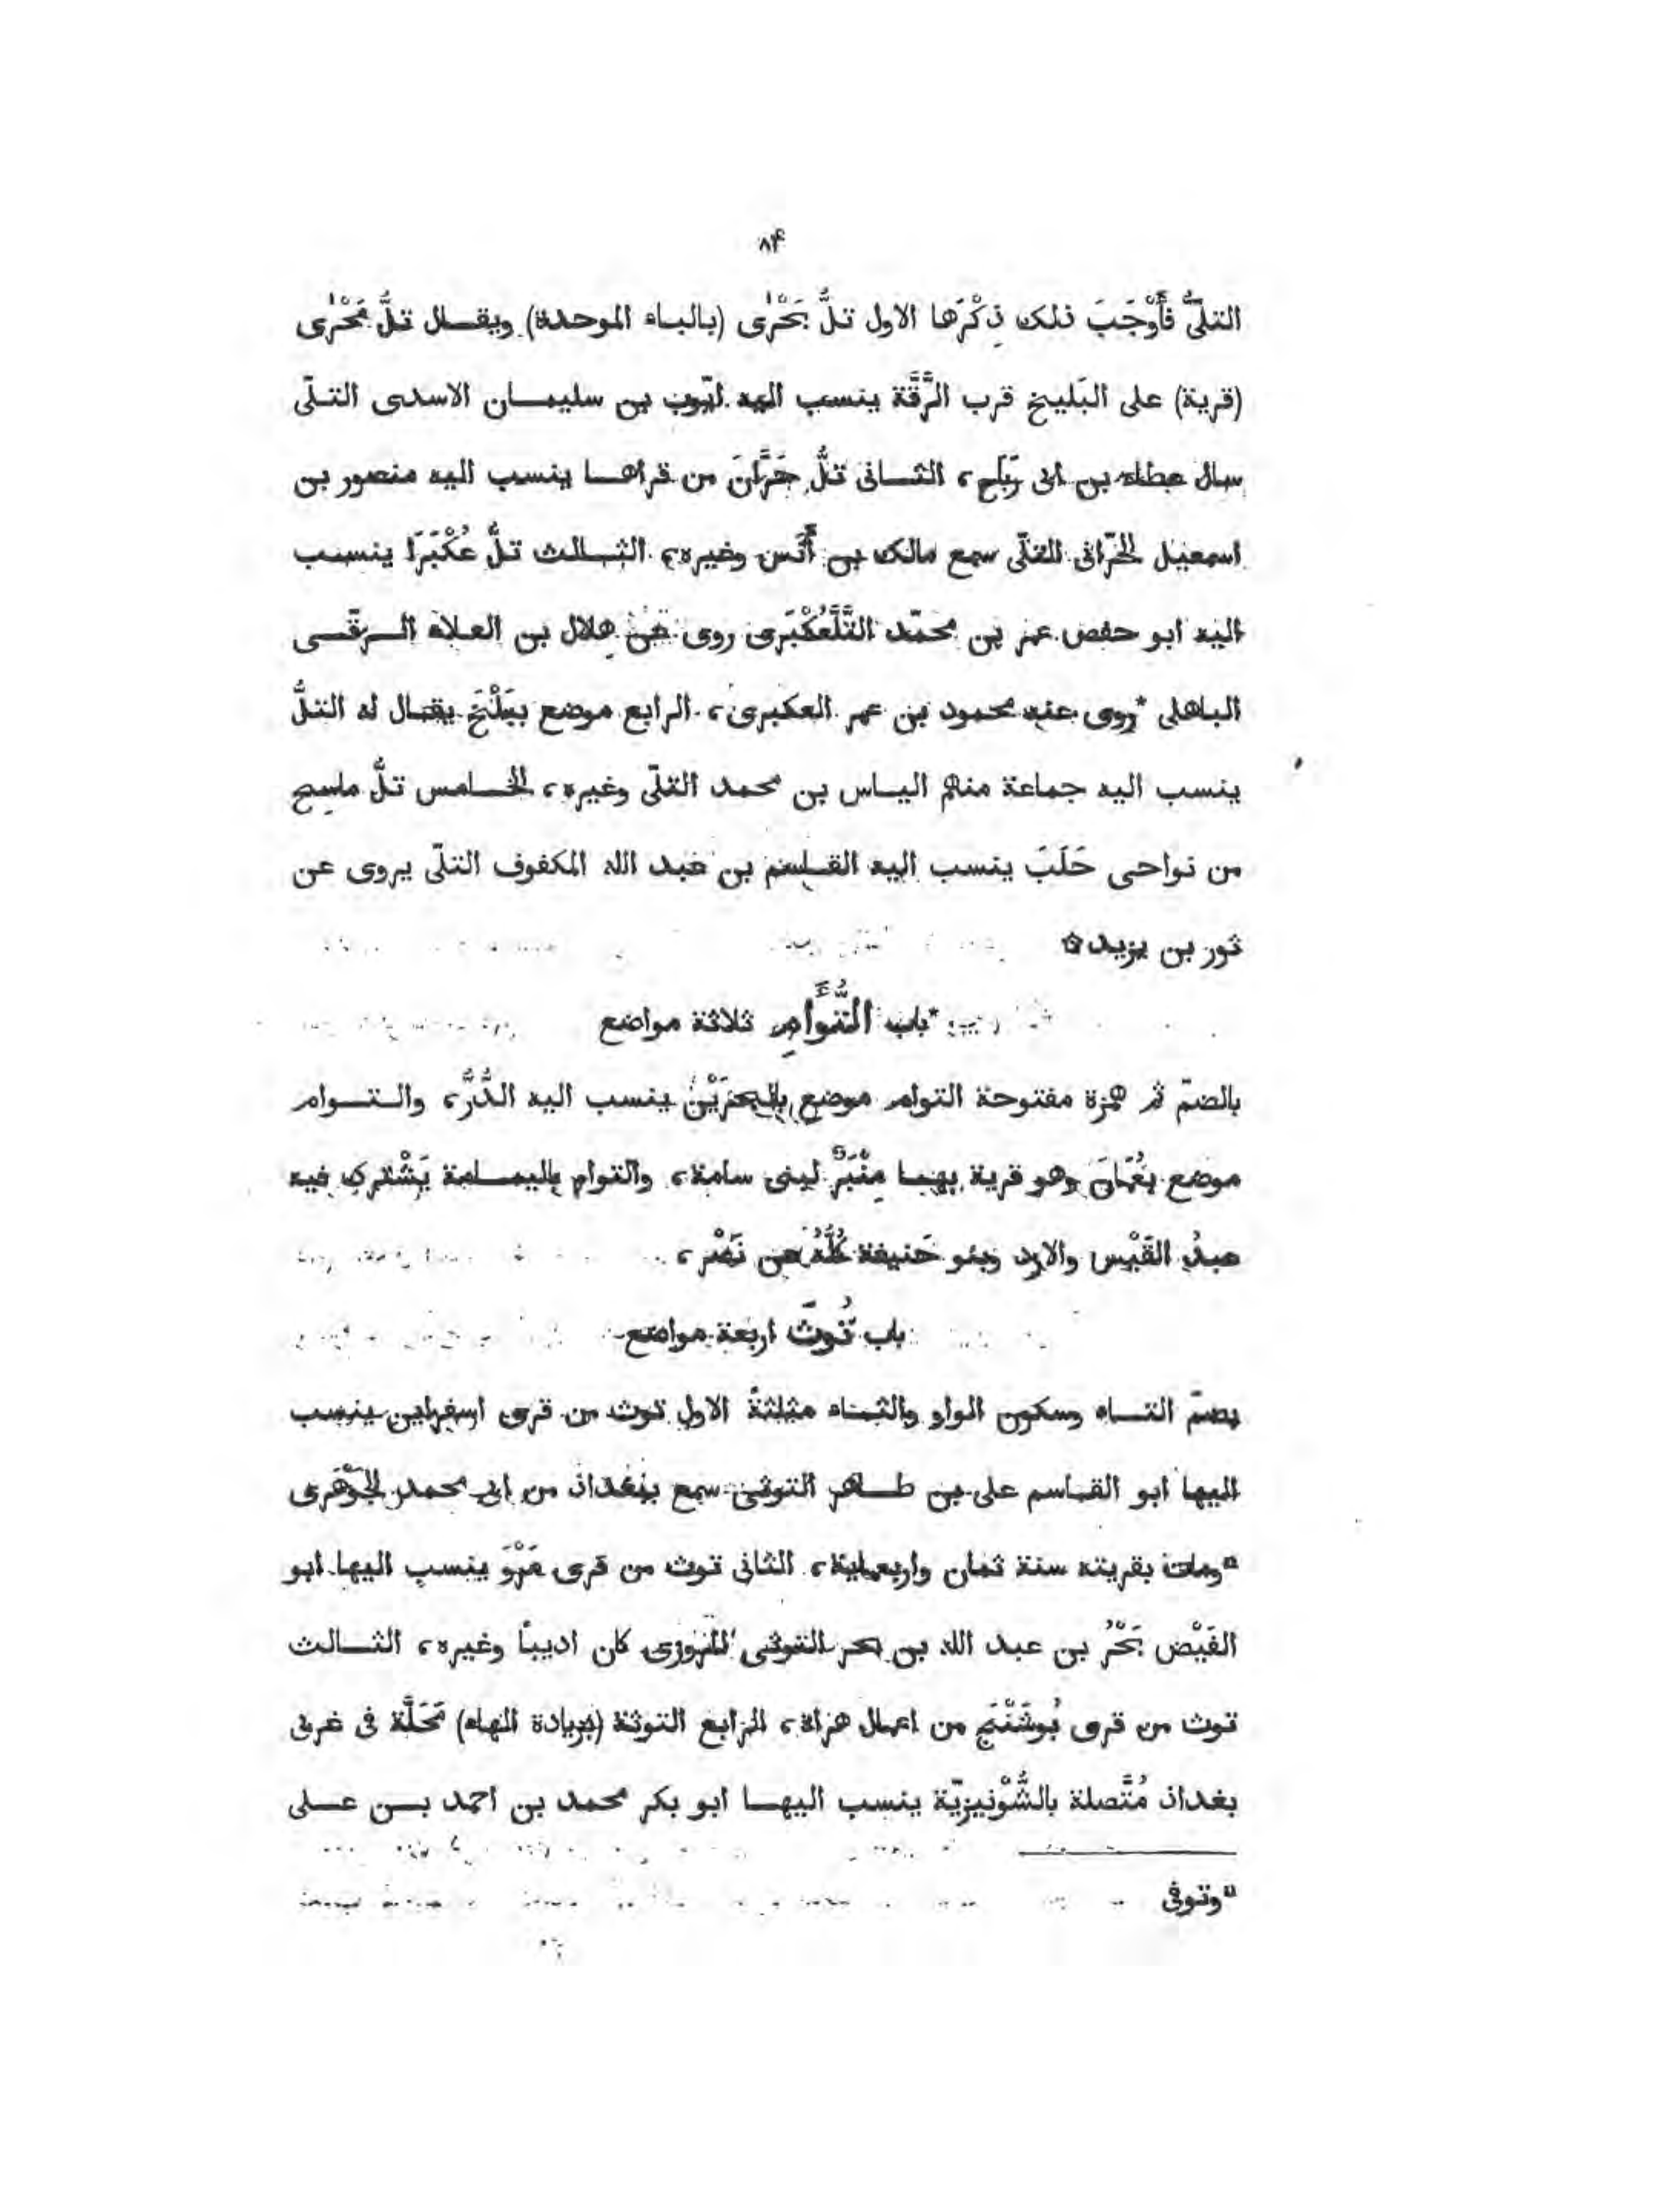 ٨۴
التلّىُّ فَأَوْجَبَ ذلك ذِكْرَها الاول تلُّ بَحْرٰى (بالباء الموحدة) ويقــال تلُّ مَحْرٰى
(قرية) على البَليخ قرب الرَّقَّة ينسب اليه ايّوب بن سليمــان الاسدى التـلّى
سال عطاء بن ابى رَبَاح، الثــانى تلُّ حَرَّانَ من قراهــا ينسب اليه منصور بن
اسمعيل الحَرّانى التلّى سمع مالك بن أَنَس وغيره، الثــالث تلُّ عُكْبَرَا ينسـب
اليه ابو حفص عمر بن محمّد التَّلَّعُكْبَرى روى عن هِلال بن العـلاء الــرقّــى
الباهلى *روى عنه محمود بن عمر العكبرى، الرابع موضع ببَلْخَ يقـال له التلُّ
ينسب اليه جماعة منهم اليـاس بن محمد التلّى وغيره، الخــامس تلُّ ماسِح
من نواحى حَلَبَ ينسب اليه القـاسم بن عبد الله المكفوف التلّى يروى عن
ثور بن يزيد۞
*باب التُّؤَامِ ثلاثة مواضع
بالضمّ ثم همزة مفتوحة التوام موضع بالبحرَيْن ينسب اليه الدُّرُّ، والــتــوام
موضع بعُمَانَ وهو قرية بهــا مِنْبَرٌ لبنى سامة، والتوام باليمــامة يَشْترك فيه
عبدُ القَيْس والازد وبنو حَنيفة كُلُّهُ عن نَصْر،
باب تُوثَ اربعة مواضع
بضمّ التــاء وسكون الواو والثـاء مثلثةً الاول توث من قرى اسفراين ينسب
اليها ابو القـاسم على بن طــاهر التوثى سمع ببغداذ من ابى محمد الجَوْهَرى
¤ومات بقريته سنة ثمان واربعماية، الثانى توث من قرى مَرْوَ ينسب اليها ابو
الفَيْض بَحْرُ بن عبد الله بن بحر التوثى المروزى كان اديبًا وغيره، الثــالث
توث من قرى بُوشَنْجَ من اعمال هراة، الرابع التوثة (بزيادة الهاء) مَحَلَّة فى غربى
بغداذ مُتَّصلة بالشُّوْنيزيّة ينسب اليهــا ابو بكر محمد بن احمد بــن عــلى
¤وتوفى